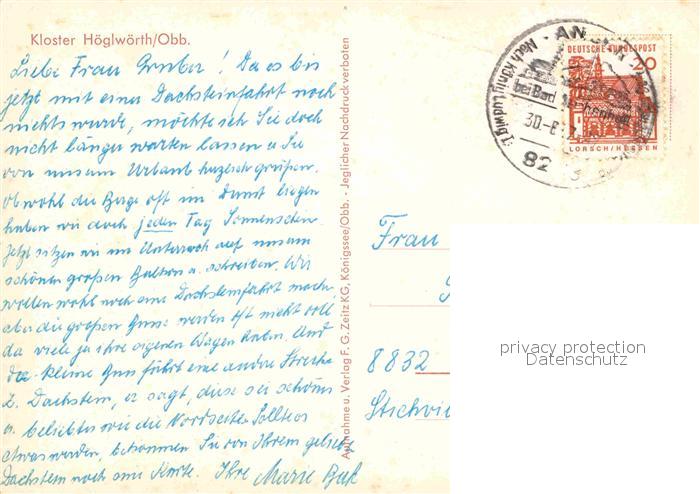 Kloster Höglwörth/Obb.
Liebe Frau Gruber! Da es bis
jetzt mit einer Dachsteinfahrt noch
nichts wurde, möchte ich Sie doch
nicht länger warten lassen u. Sie
von unserem Urlaub herzlich grüßen.
Obwohl die Berge oft im Dunst liegen
haben wir doch jeden Tag Sonnenschein.
Jetzt sitzen wir im Unterrock auf unserem
schönen großen Balkon u. schreiben. Wir
wollen wohl noch eine Dachsteinfahrt machen,
aber die großen Busse werden oft nicht voll
da viele ja ihre eigenen Wagen haben. Und
der kleine Bus fährt eine andere Strecke
z. Dachstein, er sagt, diese sei schöner
u. beliebter wie die Nordseite. Sollte es
etwas werden, bekommen Sie von Ihrem geliebten
Dachstein noch eine Karte. Ihre Marie
Aufnahme u. Verlag F. G. Zeitz KG, Königssee/Obb. - Jeglicher Nachdruck verboten
bei Bad
82
DEUTSCHE BUNDESPOST
20
LORSCH/HESSEN
Frau
8832
privacy protection
Datenschutz